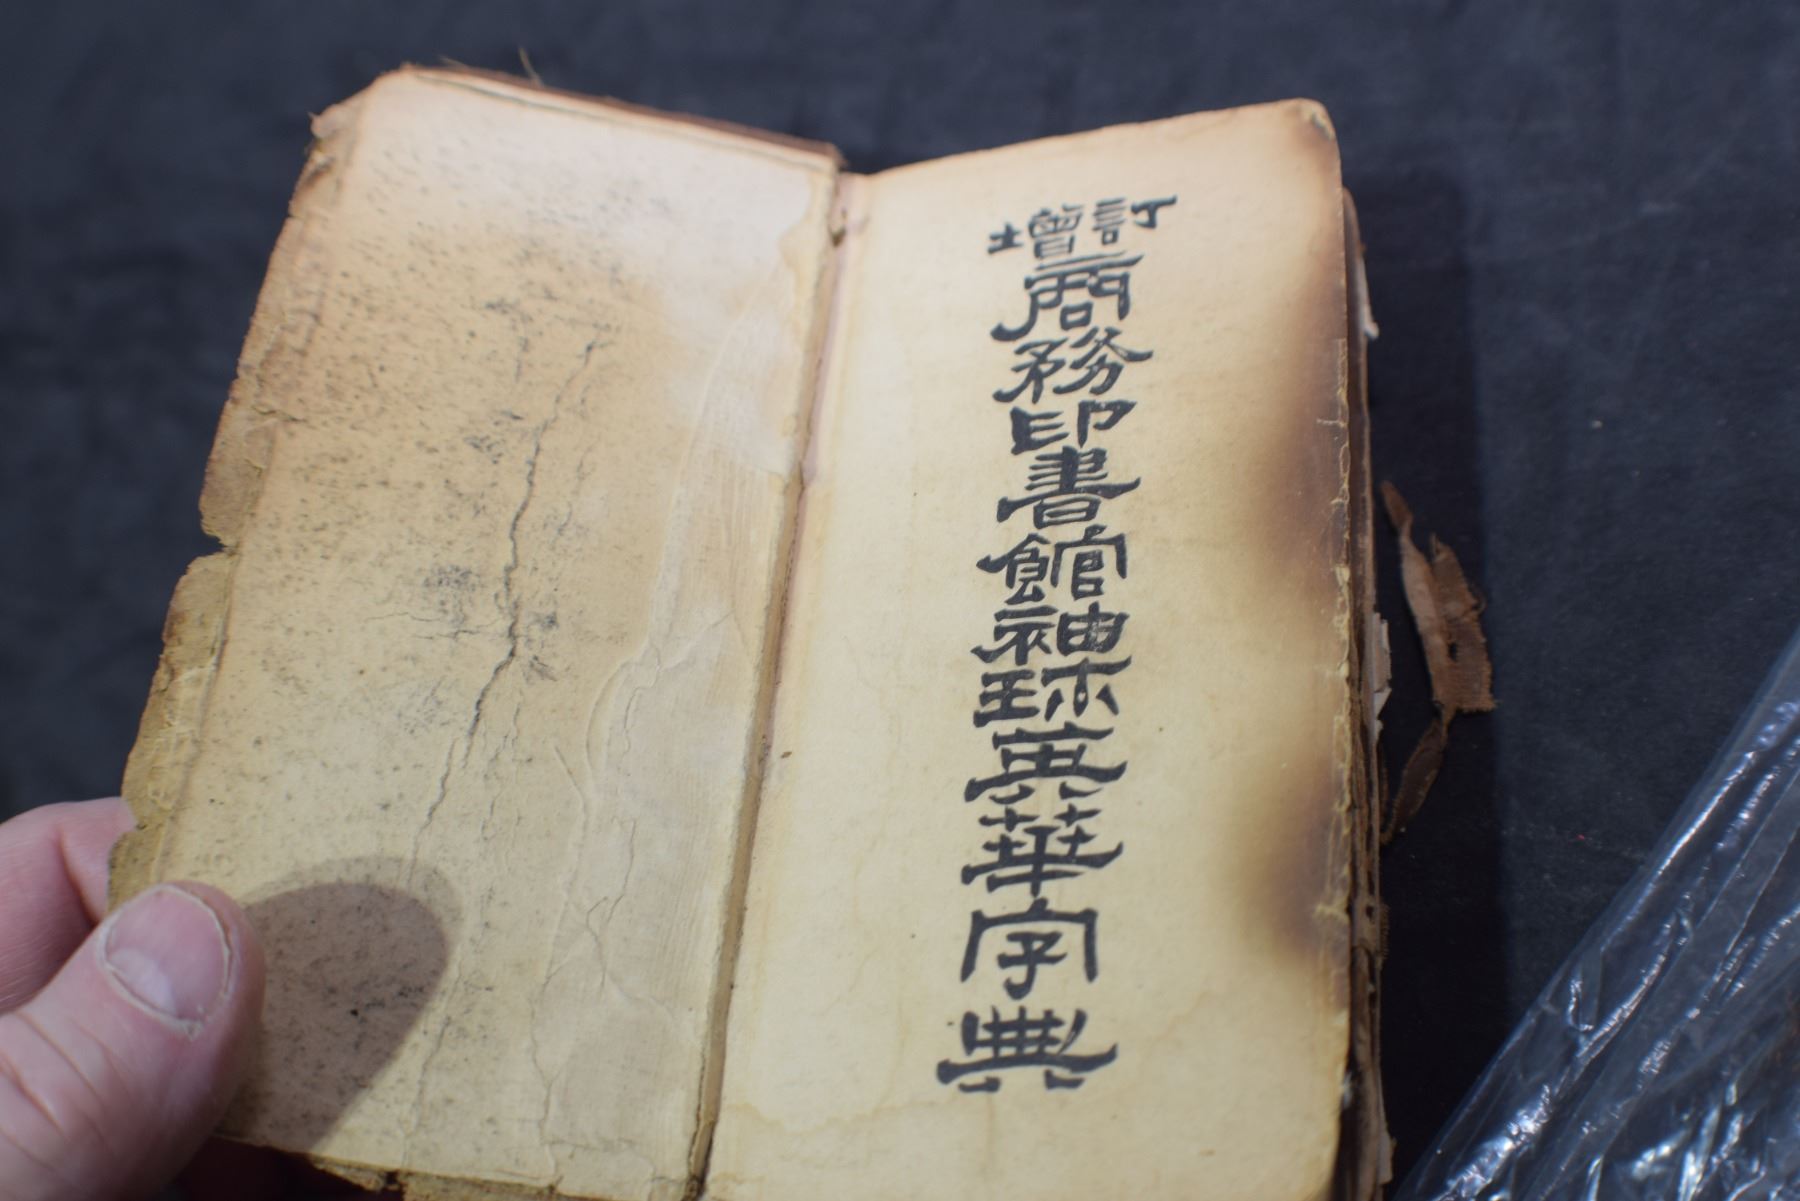 訂增
商務印書館袖珍英華字典